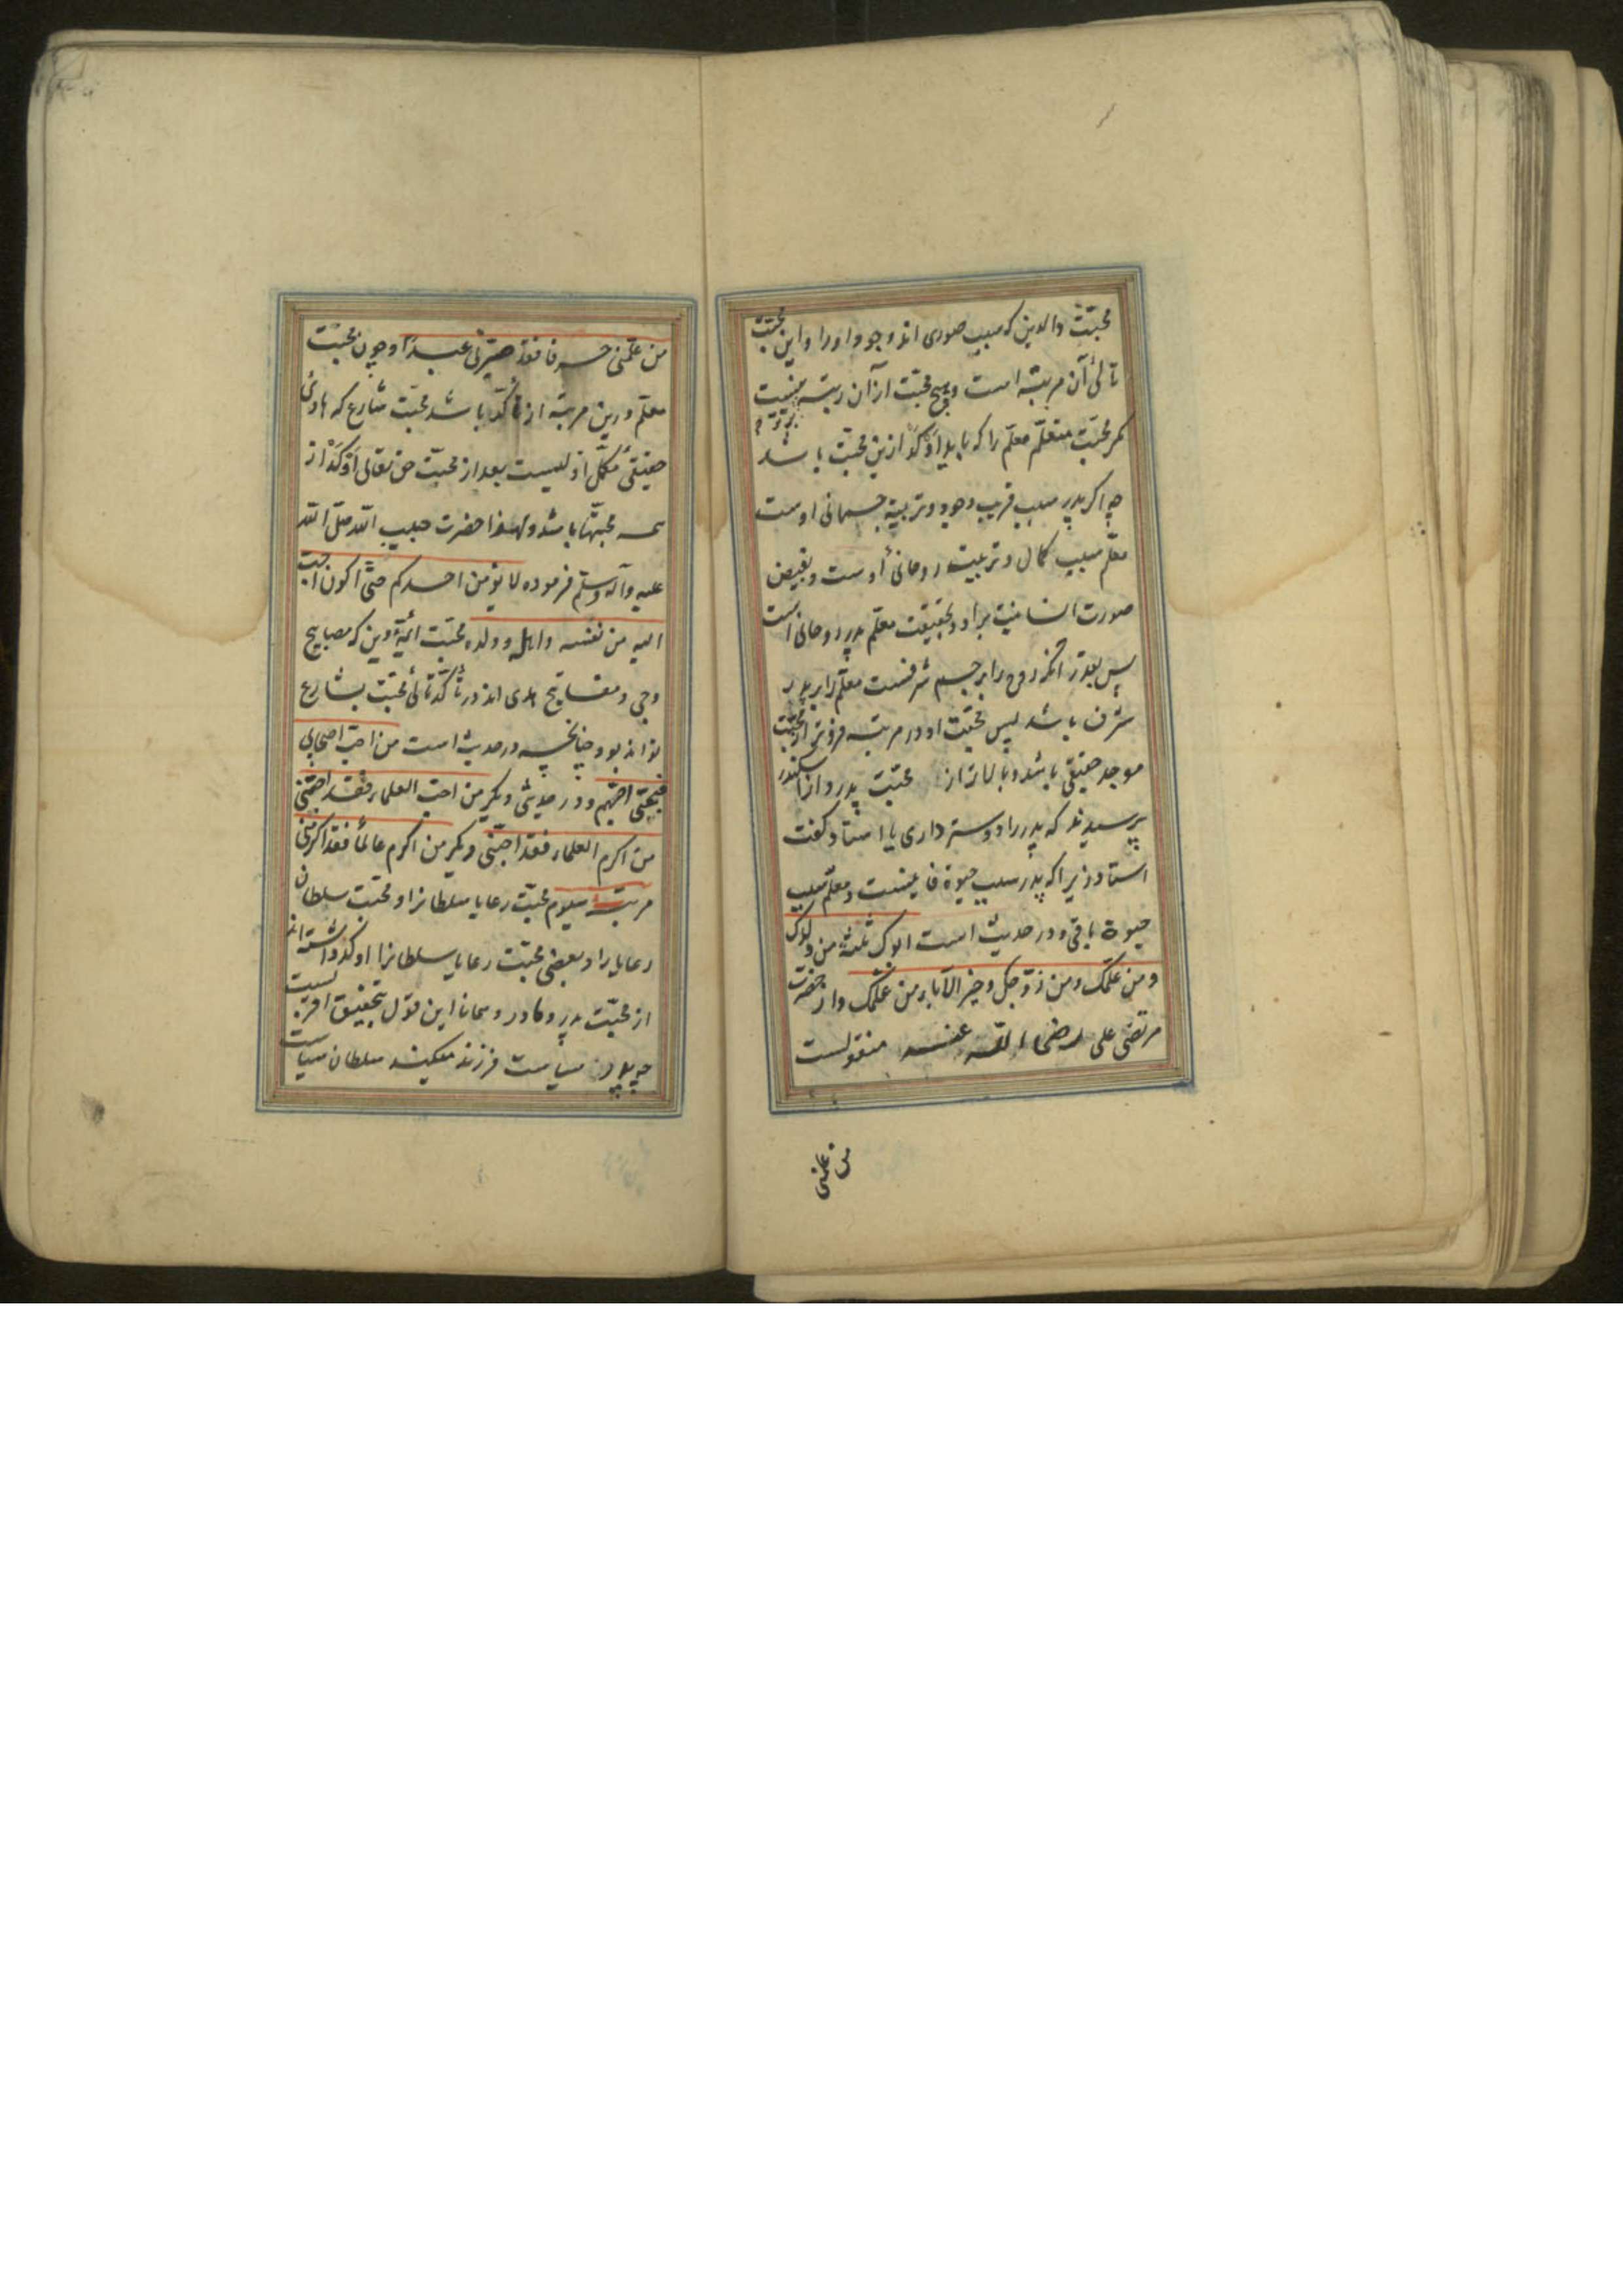 محبّت والدین که سبب صوری اند وجود او را و این محبّت
تالئ آن مرتبه است و هیچ محبّت از آن رتبه نیست
مکر محبّت متعلّم معلّم را که باید اوکد ازین محبّت باشد
چه اکر پدر سبب قریب وجود و تربیة جسمانی اوست
معلّم سبب کمال و تربیت روحانئ اوست و بفیض
صورت انسانیت برو و بحقیقت معلّم پدر روحانی است
پس بقدر آنکه روح را بر جسم شرفست معلّم را بر پدر
شرف باشد پس محبّت او در مرتبه فروتر از محبّت
موجد حقیقی باشد و بالاتر از محبّت پدر و از اسکندر
پرسیدند که پدر را دوستر داری یا استاد کفت
استاد زیرا که پدر سبب حیوة فانیست و معلّم سبب
حیوة باقی و در حدیث است ابوک ثلثة من ولدک
و من علّمک و من زوّجک و خیر الآباء من علّمک و از حضرت
مرتضی علی رضی الله عنه منقولست
من علّمنی
من علّمنی حرفا فقد صیّرنی عبدا و چون محبّت
معلّم درین مرتبه از تاکّد باشد محبّت شارع که هادئ
حقیقی و مکمّل اوّلیست بعد از محبّت حق تعالی اوکد از
همه محبّتها باشد و لهذا حضرت حبیب الله صلّی الله
علیه وآله وسلّم فرموده لا یؤمن احدکم حتّی اکون احبّ
الیه من نفسه و اهله و ولده و محبّت ائمّه دین که مصابیح
دجی و مفاتیح هدی اند در تأکّد تالئ محبّت شارع
تواند بود چنانچه در حدیث است من احبّ اصحابی
فبحبّی احبّهم و در حدیثی دیکر من احبّ العلماء فقد احبّنی
من اکرم العلماء فقد احبّنی و دیکر من اکرم عالمًا فقد اکرمنی
مرتبه سیوم محبّت رعایا سلطانرا و محبّت سلطان
رعایا را و بعضی محبّت رعایا سلطانرا اوکد داشته اند
از محبّت پدر و مادر و همانا این قول بتحقیق اقربست
چه پدر سیاست فرزند میکند سلطان سیاست